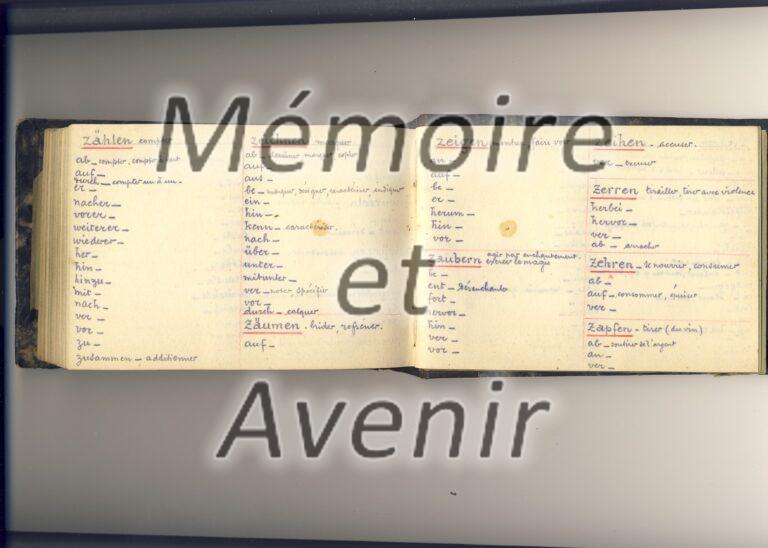 Mémoire
et
Avenir
zählen compter
ab _ compter, compter à
auf _
durch _ compter un à un.
er _
nacher _
vorer _
weiterer _
wiederer _
her _
hin _
hinzu _
mit _
nach _
ver _
vor _
zu _
zusammen _ additionner
zeichnen marquer
ab _ dessiner marquer copier
auf
aus _
be _ marquer, désigner, caractériser, indiquer
ein _
hin _
kenn _ caractériser.
nach _
über _
unter _
mitunter _
ver _ noter, spécifier
vor _
durch _ calquer
zäumen _ brider, refréner.
auf _
zeigen montrer, faire voir
an _
auf _
be _
er _
herum _
hin _
vor _
zaubern agir par enchantement.
exercer la magie
be _
ent _ désenchanter
fort _
hervor _
hin _
ver _
vor _
zeihen _ accuser.
ver _ excuser
zerren tirailler, tirer avec violence
herbei _
hervor _
ver _
ab _ arracher
zehren _ se nourrir, consumer
ab _
auf _ consommer, épuiser
ver _
zapfen _ tirer (du vin)
ab _ soutirer de l'argent
an _
ver _